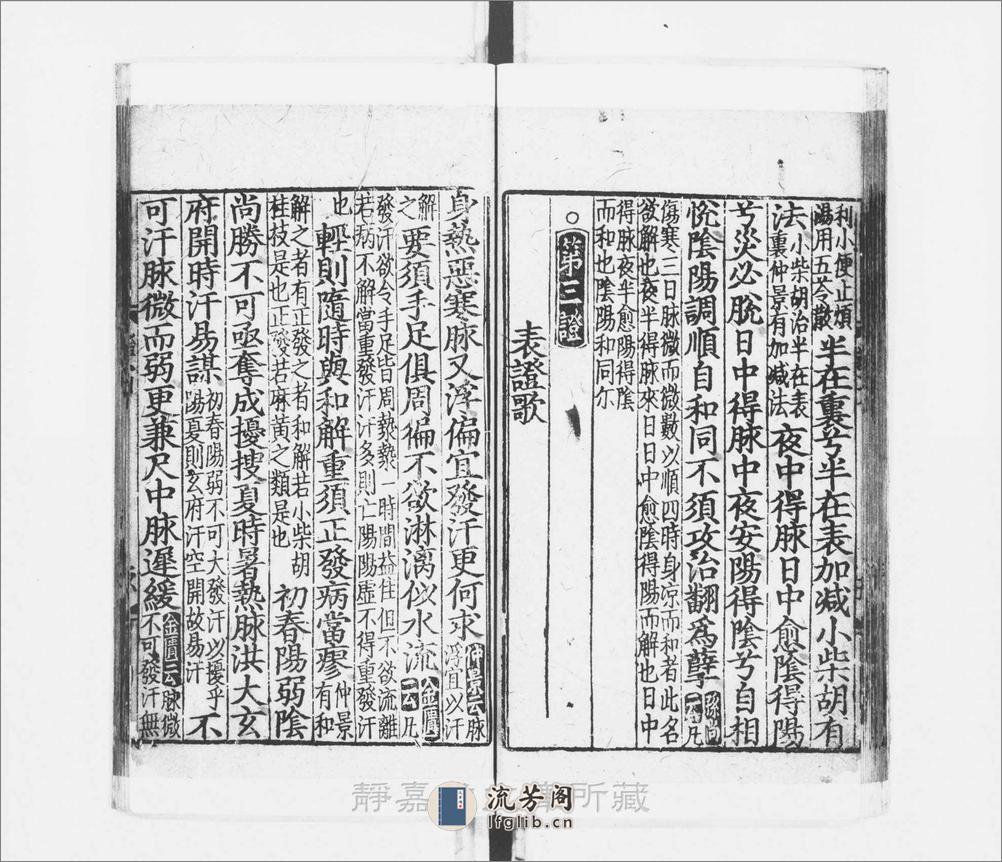 利小便止煩
湯用五苓散
半在裏兮半在表加减小柴胡有
法
小柴胡治半在表
裏仲景有加减法
夜中得脉日中愈隂得陽
兮災必脫日中得脉中夜安陽得隂兮自相
悅隂陽調順自和同不須攻治翻爲孽
一云凡
傷寒三日脉微而微數以順四時身凉而和者此名
欲解也夜半得脉來日日中愈隂得陽而解也日中
得脉夜半愈陽得隂
而和也隂陽和同尓
○第三證
表證歌
身熱惡寒脉又浮偏宜發汗更何求
仲景云脉
浮宜以汗
解之
要須手足俱周徧不欲淋漓似水流
金匱
云凡
發汗欲令手足皆周漐漐一時間益佳但不欲流離
若病不解當重發汗汗多則亡陽陽虛不得重發汗
也
輕則隨時與和解重須正發病當瘳
仲景
有和
解之者有正發之者和解若小柴胡
桂枝是也正發若麻黄之類是也
初春陽弱隂
尚勝不可亟奪成擾搜夏時暑熱脉洪大玄
府開時汗易謀
初春陽弱不可大發汗以擾乎
陽夏則玄府汗空開故易汗
不
可汗脉微而弱更兼尺中脉遲緩
金匱云脉微
不可發汗無
靜嘉
所藏
流芳阁
lfglib.cn